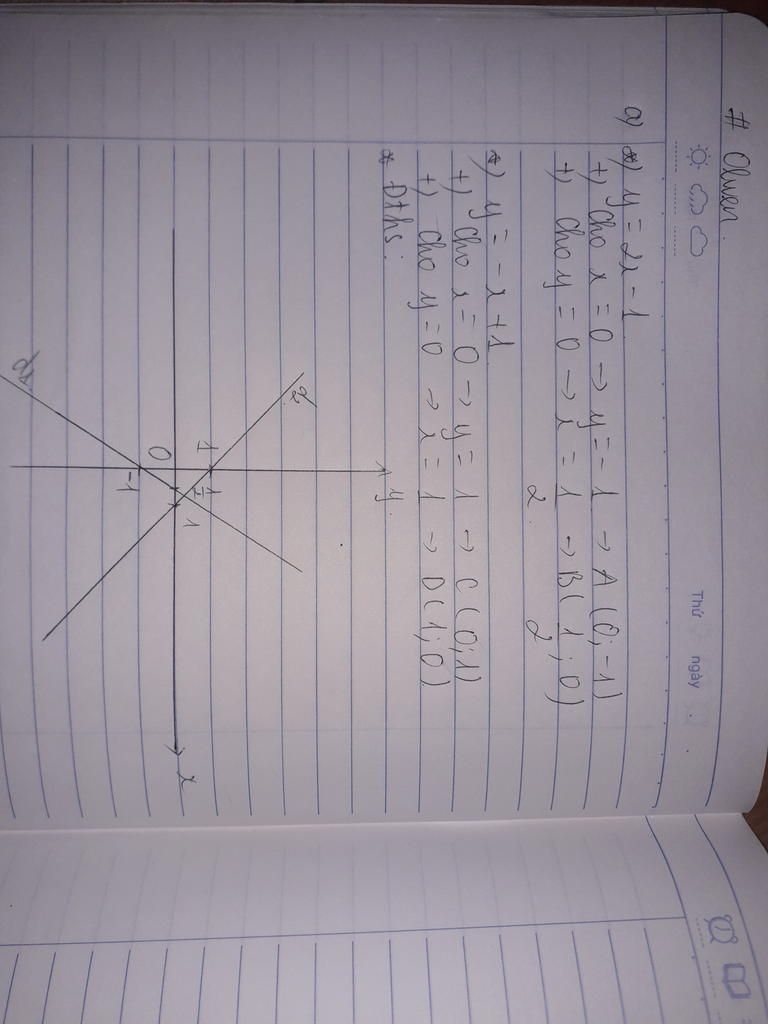 # Olwen.
Thứ ngày
a) *) y = 2x - 1
+) cho x = 0 → y = -1 → A (0; -1)
+) cho y = 0 → x = 1/2 → B(1/2; 0)
*) y = -x + 1
+) cho x = 0 → y = 1 → C (0; 1)
+) cho y = 0 → x = 1 → D(1; 0)
* Đths:
y
1
0
1/2
1
x
-1